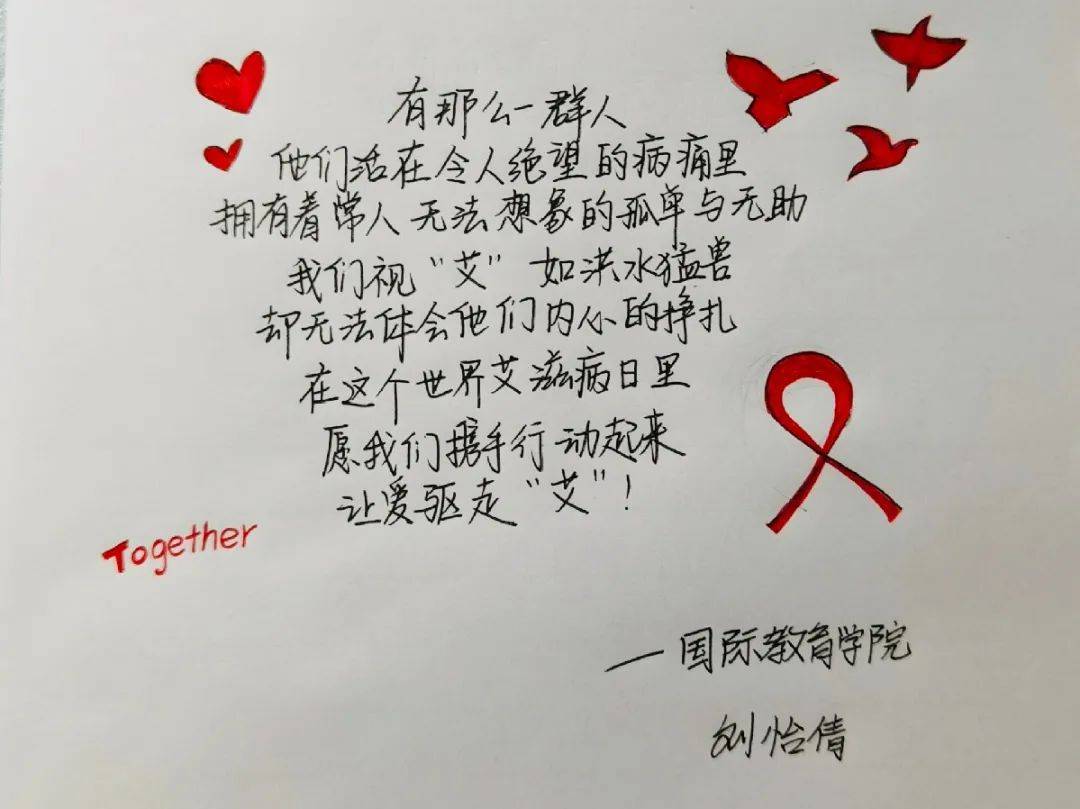 有那么一群人
他们活在令人绝望的病痛里
拥有着常人无法想象的孤单与无助
我们视“艾”如洪水猛兽
却无法体会他们内心的挣扎
在这个世界艾滋病日里
愿我们携手行动起来
让爱驱走“艾”!
Together
—国际教育学院
刘怡倩